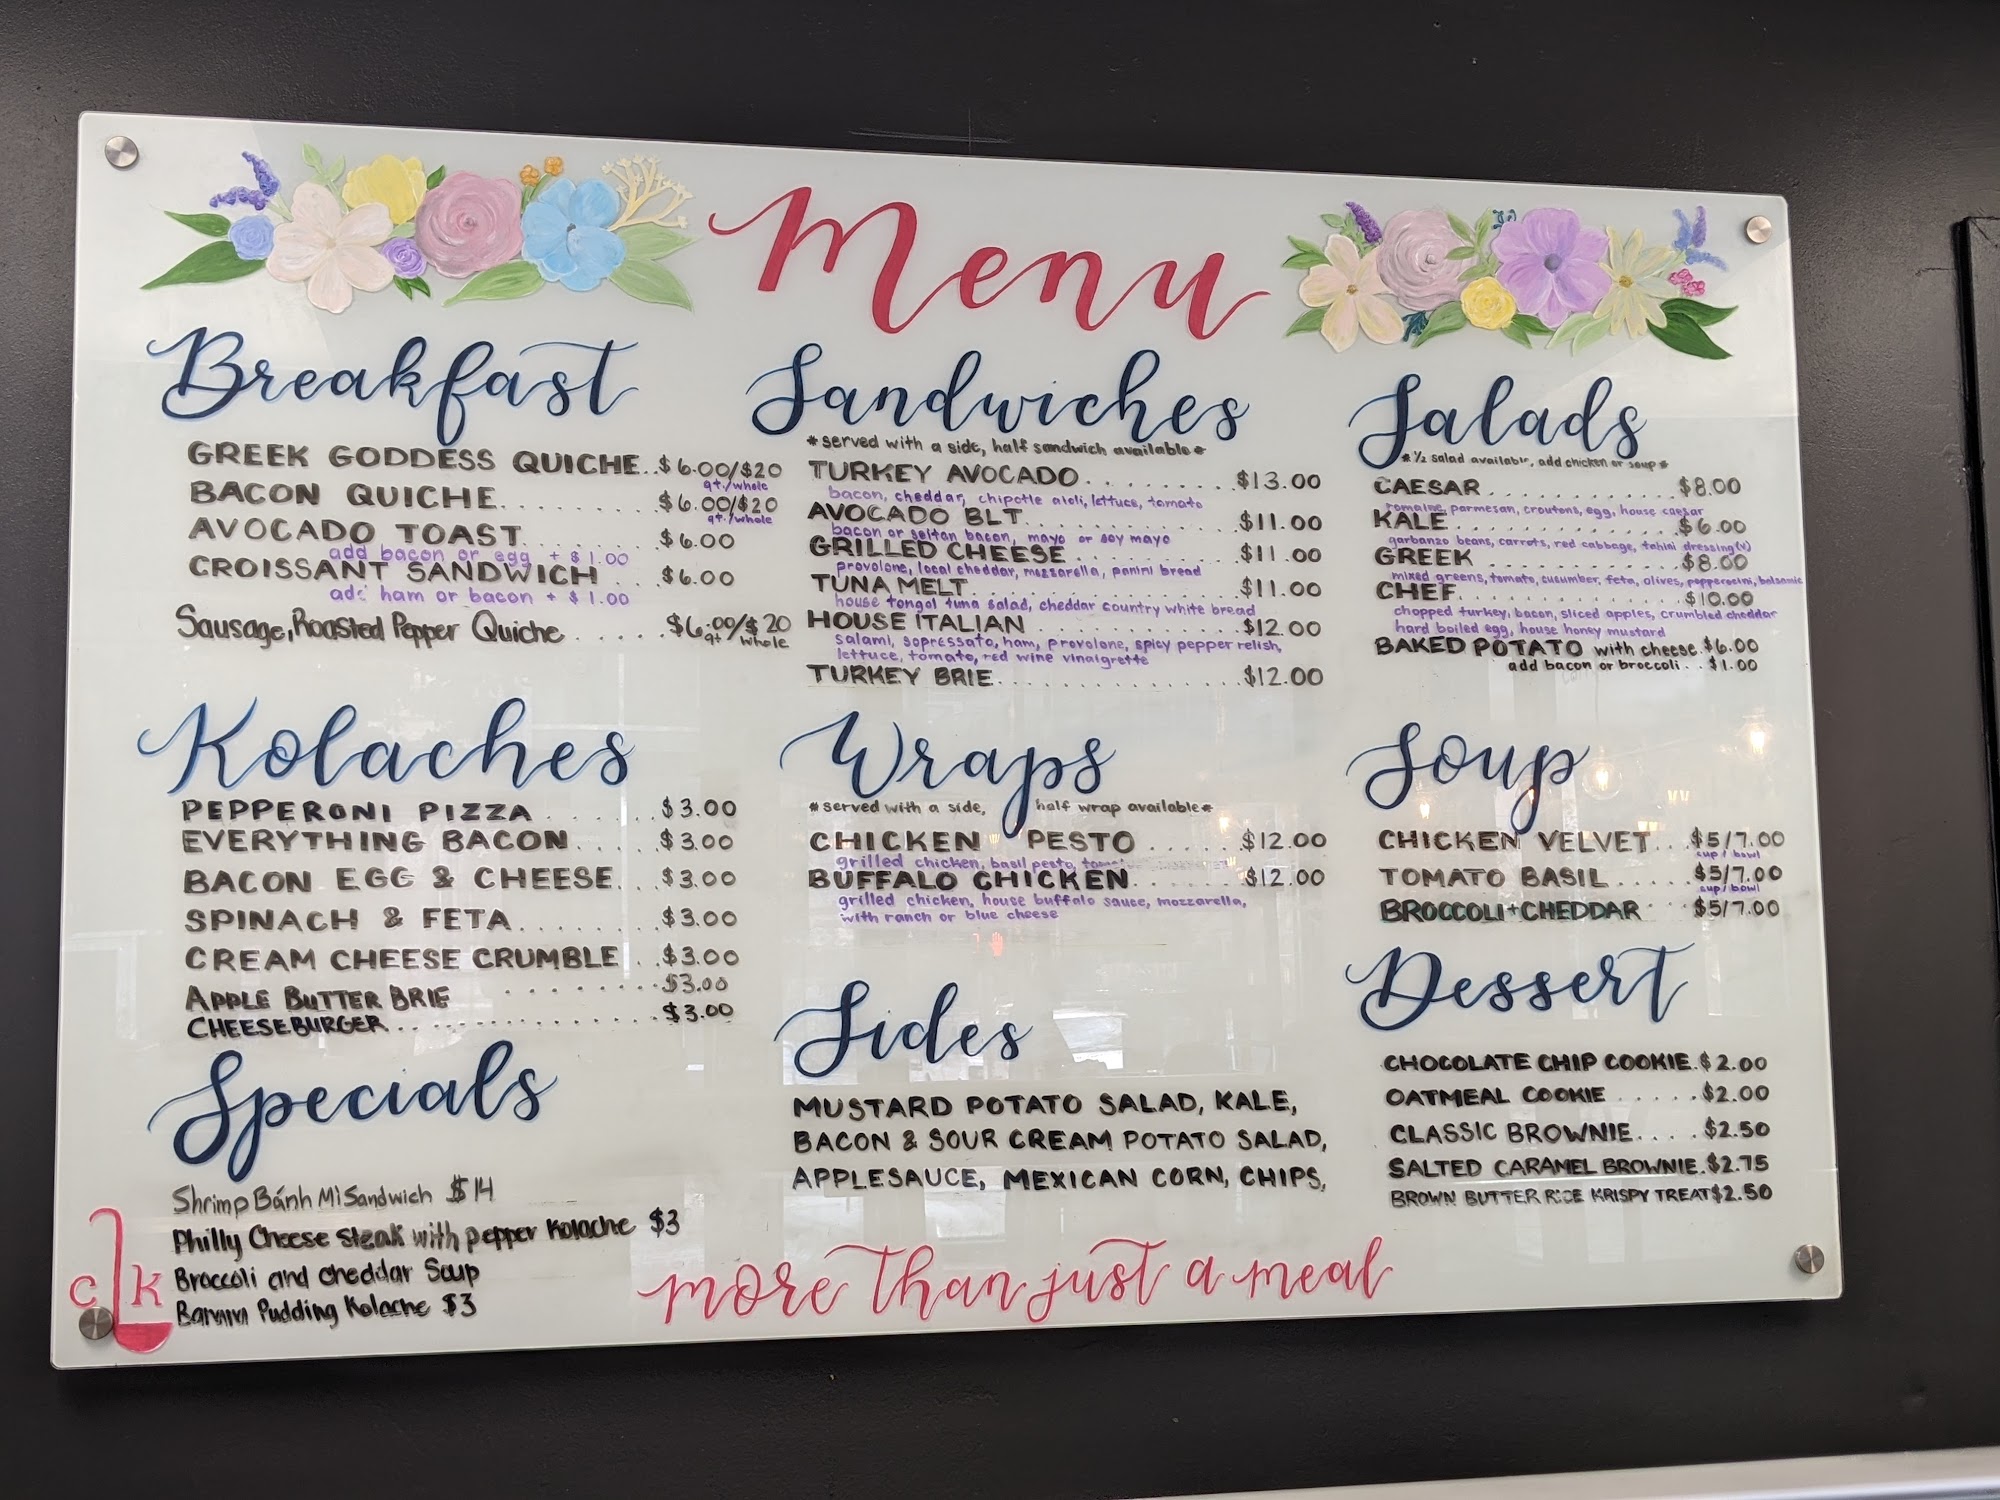 Menu
Breakfast
GREEK GODDESS QUICHE..$6.00/$20
qt./whole
BACON QUICHE........$6.00/$20
qt./whole
AVOCADO TOAST.......$6.00
add bacon or egg + $1.00
CROISSANT SANDWICH...$6.00
add ham or bacon + $1.00
Sausage, Roasted Pepper Quiche.....$6.00/$20
qt whole
Kolaches
PEPPERONI PIZZA......$3.00
EVERYTHING BACON.....$3.00
BACON EGG & CHEESE...$3.00
SPINACH & FETA.......$3.00
CREAM CHEESE CRUMBLE..$3.00
APPLE BUTTER BRIE........$3.00
CHEESEBURGER..............$3.00
Specials
Shrimp Bánh Mì Sandwich $14
Philly Cheese steak with pepper Kolache $3
Broccoli and cheddar Soup
Banana Pudding Kolache $3
c k
Sandwiches
*served with a side, half sandwich available*
TURKEY AVOCADO........$13.00
bacon, cheddar, chipotle aioli, lettuce, tomato
AVOCADO BLT............$11.00
bacon or seitan bacon, mayo or soy mayo
GRILLED CHEESE.........$11.00
provolone, local cheddar, mozzarella, panini bread
TUNA MELT..............$11.00
house tongol tuna salad, cheddar country white bread
HOUSE ITALIAN..........$12.00
salami, sopressato, ham, provolone, spicy pepper relish,
lettuce, tomato, red wine vinaigrette
TURKEY BRIE............$12.00
Wraps
*served with a side, half wrap available*
CHICKEN PESTO.....$12.00
grilled chicken, basil pesto,
BUFFALO CHICKEN......$12.00
grilled chicken, house buffalo sauce, mozzarella,
with ranch or blue cheese
Sides
MUSTARD POTATO SALAD, KALE,
BACON & SOUR CREAM POTATO SALAD,
APPLESAUCE, MEXICAN CORN, CHIPS,
Salads
*½ salad available, add chicken or soup*
CAESAR...........$8.00
romaine, parmesan, croutons, egg, house caesar
KALE.............$6.00
garbanzo beans, carrots, red cabbage, tahini dressing(v)
GREEK............$8.00
mixed greens, tomato, cucumber, feta, olives, pepperocini, balsamic
CHEF.............$10.00
chopped turkey, bacon, sliced apples, crumbled cheddar
hard boiled egg, house honey mustard
BAKED POTATO with cheese.$6.00
add bacon or broccoli..$1.00
Soup
CHICKEN VELVET...$5/7.00
cup / bowl
TOMATO BASIL.....$5/7.00
cup / bowl
BROCCOLI+CHEDDAR...$5/7.00
Dessert
CHOCOLATE CHIP COOKIE.$2.00
OATMEAL COOKIE.....$2.00
CLASSIC BROWNIE....$2.50
SALTED CARAMEL BROWNIE.$2.75
BROWN BUTTER RICE KRISPY TREAT$2.50
more than just a meal